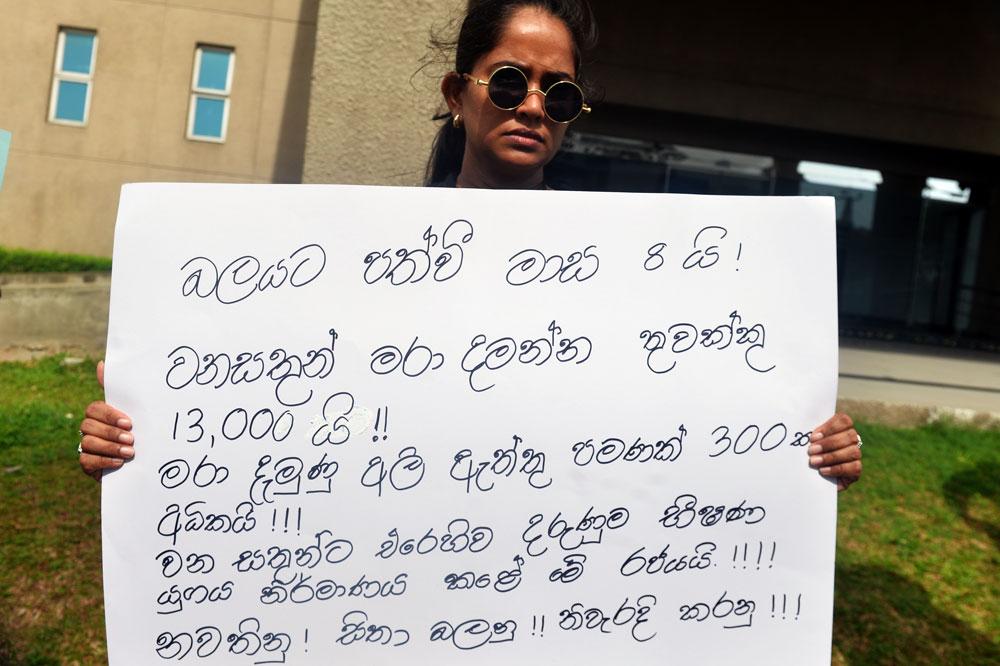 බලයට පත්වී මාස 8 යි !
වනසතුන් මරා දමන්න තුවක්කු
13,000 යි !!
මරා දැමුණු අලි ඇත්තු පමණක් 300 ක
අධිකයි !!!
වන සතුන්ට එරෙහිව දරුණුම භීෂණ
යුගය නිර්මාණය කළේ මේ රජයයි. !!!!
නවතිනු ! සිතා බලනු !! නිවැරදි කරනු !!!